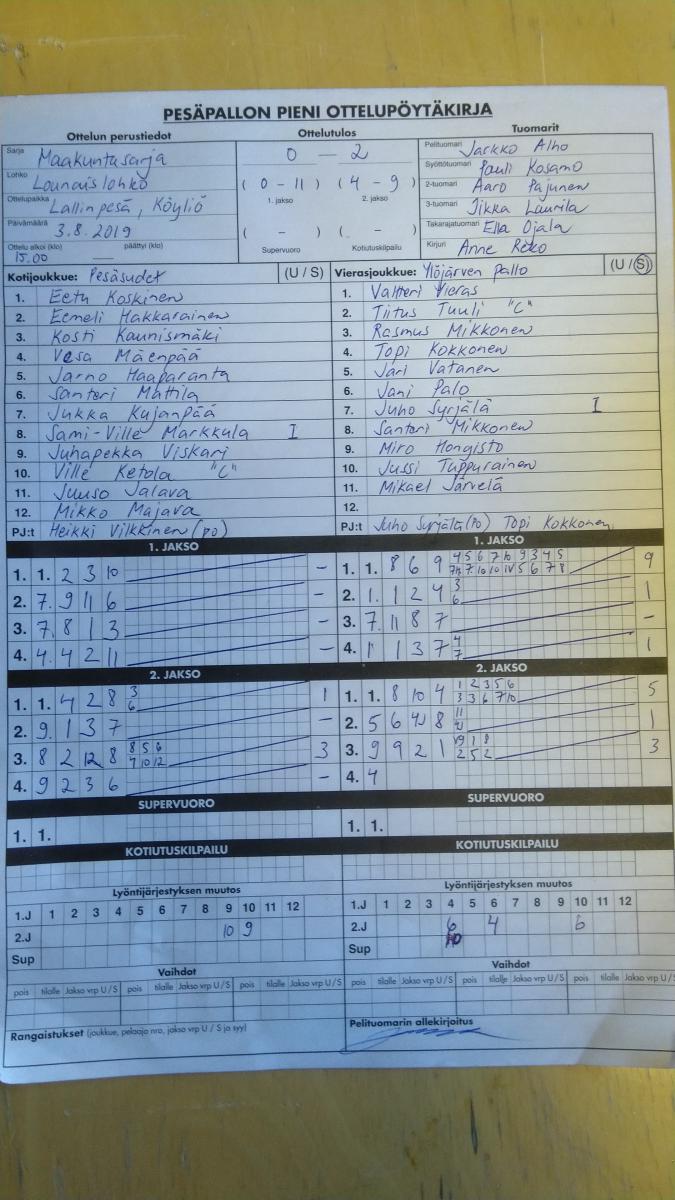 PESÄPALLON PIENI OTTELUPÖYTÄKIRJA
Ottelun perustiedot
Sarja Maakuntasarja
Lohko Lounaislohko
Ottelupaikka Lallinpesä, Köyliö
Päivämäärä 3.8.2019
Ottelu alkoi (klo) päättyi (klo)
15.00 —
Ottelutulos
0 — 2
(0 - 11) (4 - 9)
1. jakso 2. jakso
( - ) ( - )
Supervuoro Kotiutuskilpailu
Tuomarit
Pelituomari Jarkko Alho
Syöttötuomari Pauli Kosamo
2-tuomari Aaro Pajunen
3-tuomari Jikka Laurila
Takarajatuomari Ella Ojala
Kirjuri Anne
Kotijoukkue: Pesäsudet (U / S)
1. Eetu Koskinen
2. Eemeli Hakkarainen
3. Kosti Kaunismäki
4. Vesa Mäenpää
5. Jarno Haaparanta
6. Santeri Mattila
7. Jukka Kujanpää
8. Sami-Ville Markkula I
9. Juhapekka Viskari
10. Ville Ketola "C"
11. Juuso Jalava
12. Mikko Majava
PJ:t Heikki Vilkkinen (po)
Vierasjoukkue: Ylöjärven Pallo (U / S)
1. Valtteri Vieras
2. Tiitus Tuuli "C"
3. Rasmus Mikkonen
4. Topi Kokkonen
5. Jari Vatanen
6. Jani Palo
7. Juho Syrjälä I
8. Santeri Mikkonen
9. Miro Hongisto
10. Jussi Tuppurainen
11. Mikael Järvelä
12.
PJ:t Juho Syrjälä (po) Topi Kokkonen
1. JAKSO
1. 1. 2 3 10 -
2. 7. 9 11 6 -
3. 7. 8 1 3 -
4. 4. 4 2 11 -
2. JAKSO
1. 1. 4 2 8 3 1
6
2. 9. 1 3 7 -
3. 8 2 12 8 8 5 6 3
9 10 12
4. 9 2 3 6 -
SUPERVUORO
1. 1.
KOTIUTUSKILPAILU
Lyöntijärjestyksen muutos
1.J 1 2 3 4 5 6 7 8 9 10 11 12
2.J 10 9
Sup
Vaihdot
pois tilalle Jakso vrp U / S pois tilalle Jakso vrp U / S pois tilalle Jakso vrp U / S
Rangaistukset (joukkue, pelaaja nro, jakso vrp U / S ja syy)
1. JAKSO
1. 1. 8 6 9 4 5 6 7 10 9 3 4 5 9
5 6 7 8
2. 1. 1 2 4 3 1
6
3. 7. 11 8 7 -
4. 1 1 3 7 4 1
7
2. JAKSO
1. 1. 8 10 4 1 2 3 5 6 5
3 3 6 7 10
2. 5 6 8 11 1
3. 9 9 2 1 1 8 3
2 5 2
4. 4
SUPERVUORO
1. 1.
KOTIUTUSKILPAILU
Lyöntijärjestyksen muutos
1.J 1 2 3 4 5 6 7 8 9 10 11 12
2.J 6 4 6
10
Sup
Vaihdot
pois tilalle Jakso vrp U / S pois tilalle Jakso vrp U / S pois tilalle Jakso vrp U / S
Pelituomarin allekirjoitus